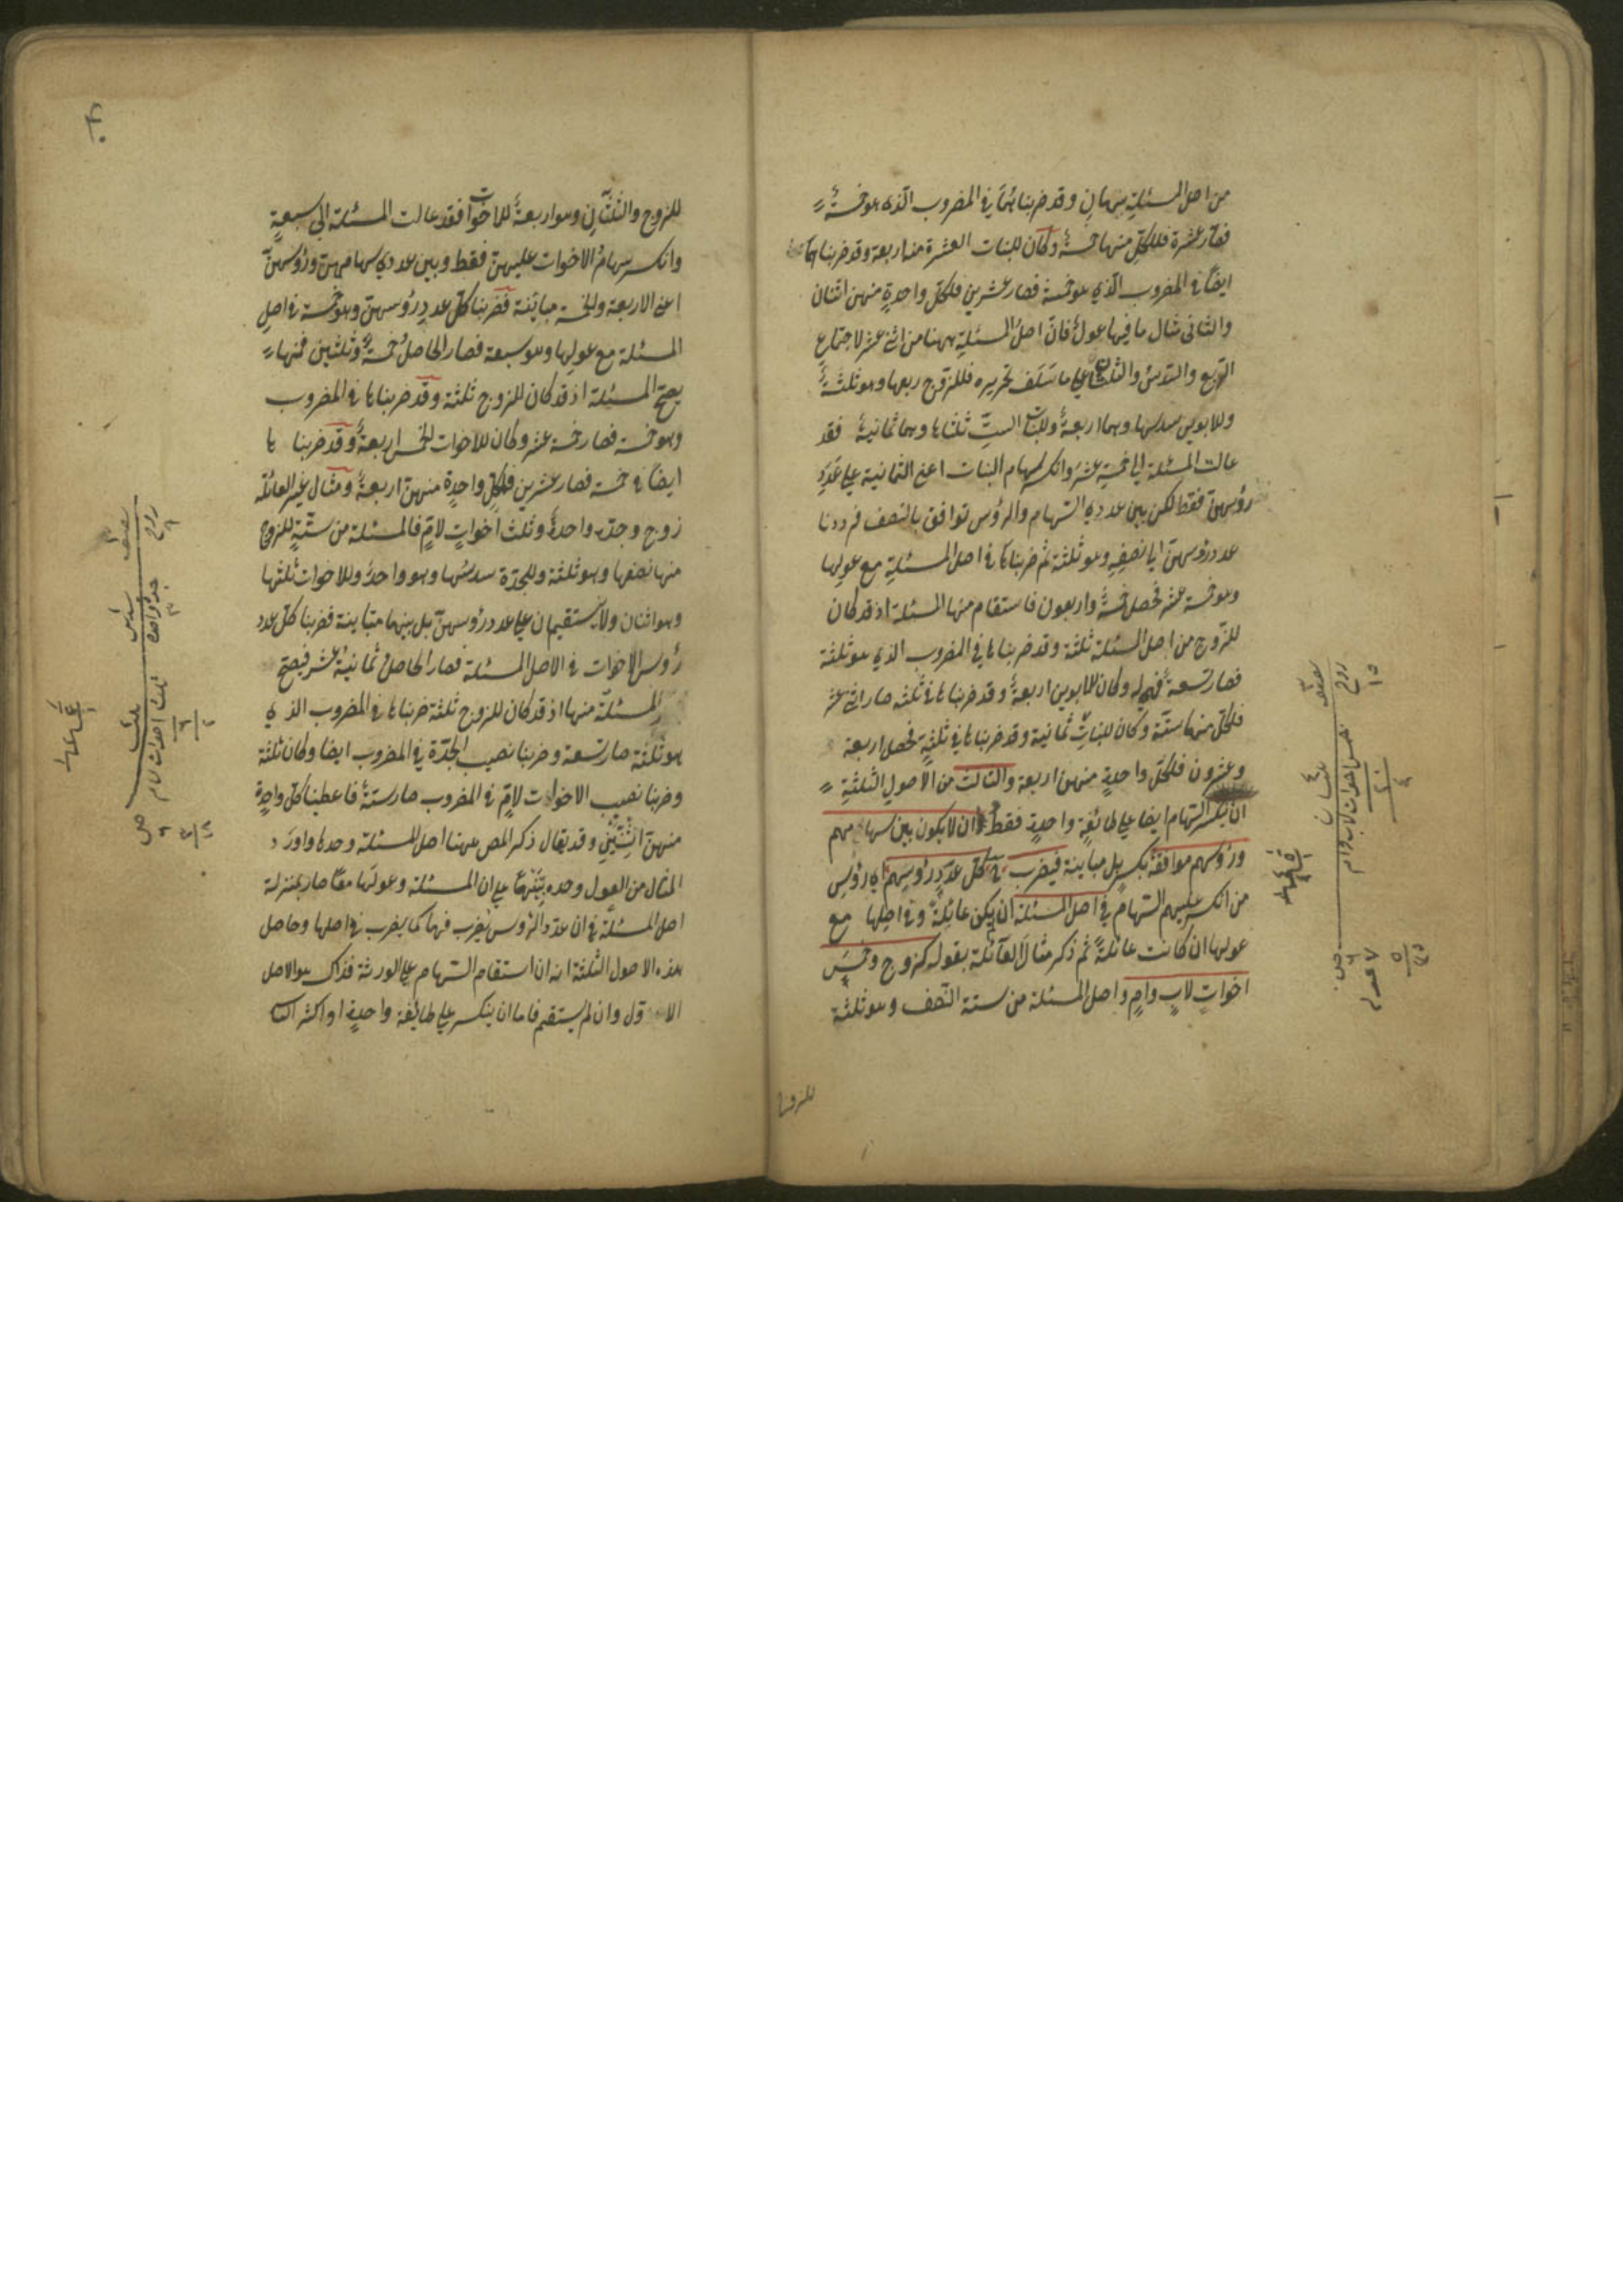 من اصل المسئلة سهمان وقد ضربناهما في المضروب الذي هو خمسة
فصار عشرة فلكل منهما خمسة وكان للبنات العشرة منه اربعة وقد ضربناها
ايضا في المضروب الذي هو خمسة فصار عشرين فلكل واحدة منهن اثنان
والثاني مثال ما فيها عول فان اصل المسئلة ههنا من اثني عشر لاجتماع
الربع والسدس والثلثان على ما سلف تحريره فللزوج ربعها وهو ثلثة
وللابوين سدسها وهما اربعة وللبنات الست ثلثاها وهما ثمانية فقد
عالت المسئلة الى خمسة عشر وانكسر سهام البنات اعني الثمانية على عدد
رؤسهن فقط لكن بين عددي السهام والرؤس توافق بالنصف فرددنا
عدد رؤسهن الى نصفه وهو ثلثة ثم ضربناها في اصل المسئلة مع عولها
وهو خمسة عشر فحصل خمسة واربعون فاستقام منها المسئلة اذ قد كان
للزوج من اصل المسئلة ثلثة وقد ضربناها في المضروب الذي هو ثلثة
فصار تسعة فهي له وكان للابوين اربعة وقد ضربناها في ثلثة صار اثني عشر
فلكل منهما ستة وكان للبنات ثمانية وقد ضربناها في ثلثة فحصل اربعة
وعشرون فلكل واحدة منهن اربعة والثالث من الاصول الثلثة
ان ينكسر السهام ايضا على طائفة واحدة فقط وان لا يكون بين سهامهم
ورؤسهم موافقة بكسر بل مباينة فيضرب ح كل عدد رؤسهم اي رؤس
من انكسر عليهم السهام في اصل المسئلة ان لم يكن عائلة وفي اصلها مع
عولها ان كانت عائلة ثم ذكر مثال العائلة بقوله كزوج وخمس
اخوات لاب وام واصل المسئلة من ستة النصف وهو ثلثة
للزوج
للزوج والثلثان وهو اربعة للاخوات فقد عالت المسئلة الى سبعة
وانكسر سهام الاخوات عليهن فقط وبين عددي سهامهن ورؤسهن
اعني الاربعة والخمسة مباينة فضربنا كل عدد رؤسهن وهو خمسة في اصل
المسئلة مع عولها وهو سبعة فصار الحاصل خمسة وثلثين فمنها
يصح المسئلة اذ قد كان للزوج ثلثة وقد ضربناها في المضروب
وهو خمسة فصار خمسة عشر وكان للاخوات الخمس اربعة وقد ضربناها
ايضا في خمسة فصار عشرين فلكل واحدة منهن اربعة ومثال غير العائلة
زوج وجدة واحدة وثلث اخوات لام فالمسئلة من ستة للزوج
منها نصفها وهو ثلثة وللجدة سدسها وهو واحد وللاخوات ثلثها
وهو اثنان ولا يستقيمان على عدد رؤسهن بل بينهما مباينة فضربنا كل عدد
رؤس الاخوات في الاصل المسئلة فصار الحاصل ثمانية عشر فيصح
المسئلة منها اذ قد كان للزوج ثلثة ضربناها في المضروب الذي
هو ثلثة صار تسعة وضربنا نصيب الجدة في المضروب ايضا وكان ثلثة
وضربنا نصيب الاخوات لام في المضروب صار ستة فاعطينا كل واحدة
منهن اثنتين وقد يقال ذكر المص ههنا اصل المسئلة وحدها واورد
المثال من العول وحده تنبيها على ان المسئلة وعولها معا صار بمنزلة
اصل المسئلة في ان عدد الرؤس يضرب فيها كما يضرب في اصلها وحاصل
هذه الاصول الثلثة انه ان استقام السهام على الورثة فذاك هو الاصل
الاول وان لم يستقم فاما ان ينكسر على طائفة واحدة او اكثر